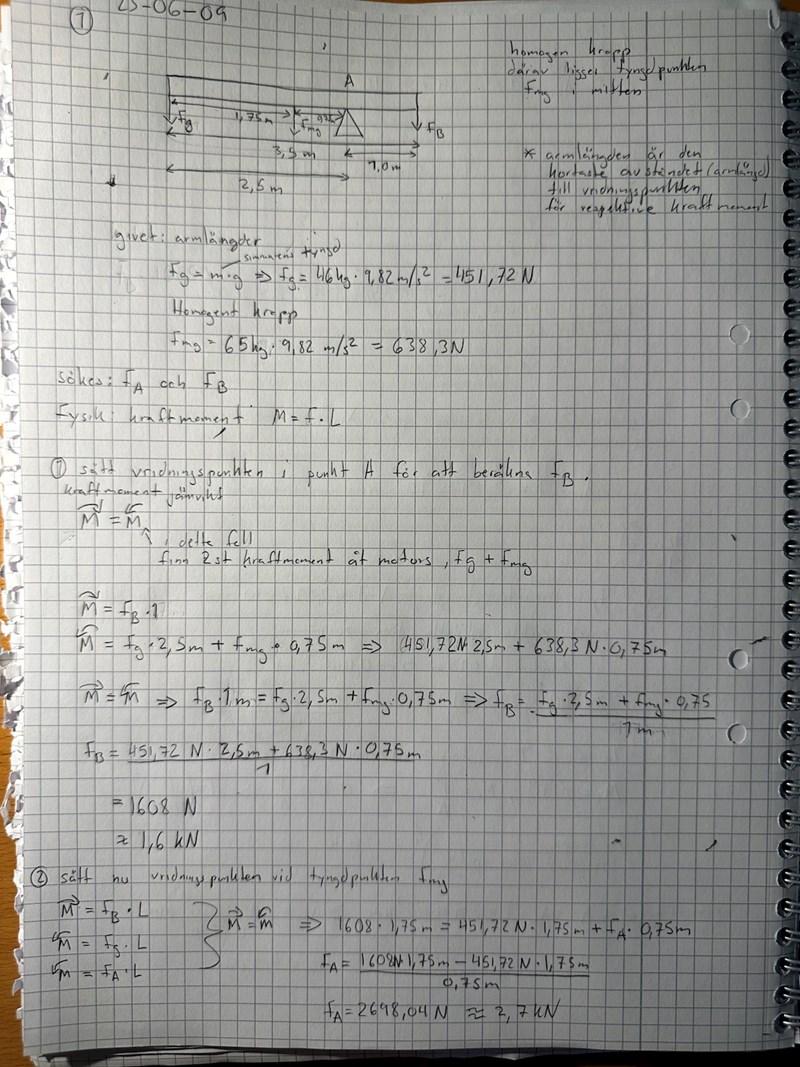 ① 25-06-09
homogen kropp
därav ligger tyngdpunkten
Fmg i mitten
A
1,75m
0,75m
fg
Fmg
fB
3,5 m
1,0m
2,5 m
* armlängden är den
kortaste avståndet (armlängd)
till vridningspunkten
för respektive kraftmoment
givet: armlängder
simmarens tyngd
Fg = m·g ⇒ fg = 46kg · 9,82 m/s² = 451,72 N
Homogent kropp
fmg = 65kg · 9,82 m/s² = 638,3N
sökes: fA och fB
Fysik: kraftmoment M = f·L
① sätt vridningspunkten i punkt A för att beräkna fB.
kraftmoment jämvikt
M = M
i detta fell
finn 2st kraftmoment åt moturs, fg + fmg
M = fB · 1
M = fg · 2,5m + fmg · 0,75m ⇒ 451,72N·2,5m + 638,3N·0,75m
M = M ⇒ fB · 1m = fg·2,5m + fmg·0,75m ⇒ fB = fg·2,5m + fmg·0,75
1m
fB = 451,72 N · 2,5m + 638,3 N · 0,75m
1
= 1608 N
≈ 1,6 kN
② sätt nu vridningspunkten vid tyngdpunkten fmg
M = fB · L
M = fg · L
M = fA · L
M = M ⇒ 1608 · 1,75m = 451,72N · 1,75m + fA · 0,75m
fA = 1608N·1,75m − 451,72N · 1,75m
0,75m
fA = 2698,04 N ≈ 2,7 kN